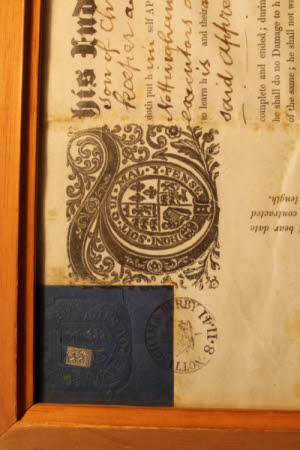 his Ind
son of Ch
Keeper an
doth put h im self AP
Nottingham
executors a
to learn h is and their
said Appre
complete and ended; durin
he shall do no Damage to h
of the same; he shall not w
HONI SOIT Q UI MAL Y PENSE
bear date
contracted
length.
DERBY 14·11·8